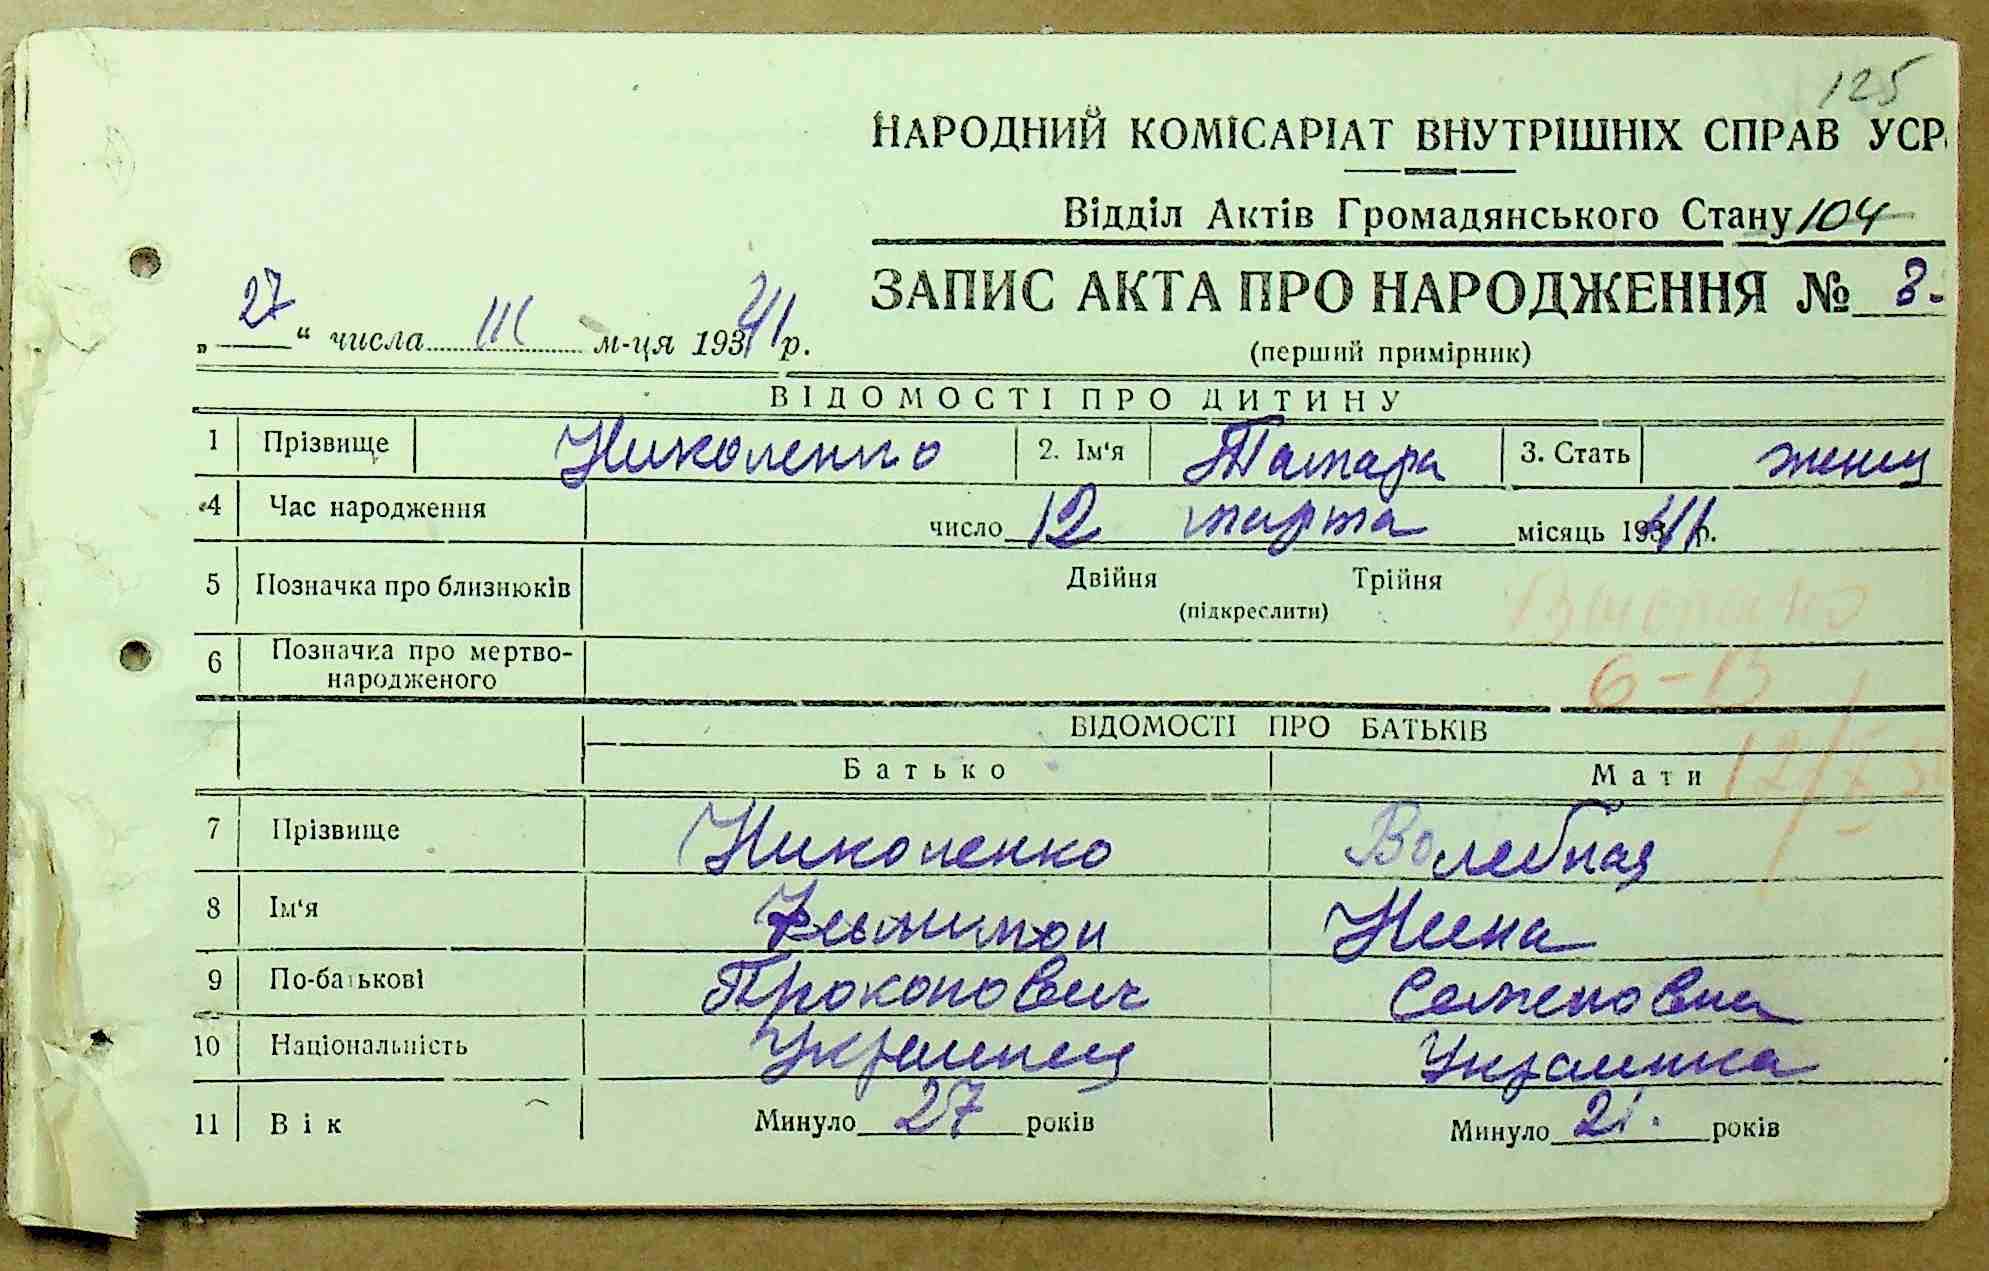 125
НАРОДНИЙ КОМІСАРІАТ ВНУТРІШНІХ СПРАВ УСР
Відділ Актів Громадянського Стану 104
ЗАПИС АКТА ПРО НАРОДЖЕННЯ № 8.
„27“ числа III м-ця 1941 р.
(перший примірник)
ВІДОМОСТІ ПРО ДИТИНУ
1 Прізвище Николенко 2. Ім'я Тамара 3. Стать женщ
4 Час народження число 12 марта місяць 1941 р.
5 Позначка про близнюків Двійня Трійня
(підкреслити)
6 Позначка про мертво-
народженого
6-В
ВІДОМОСТІ ПРО БАТЬКІВ
Батько Мати
7 Прізвище Николенко Волебная
8 Ім'я Нина
9 По-батькові Прокопович Семеновна
10 Національність Украинец Украинка
11 Вік Минуло 27 років Минуло 21. років